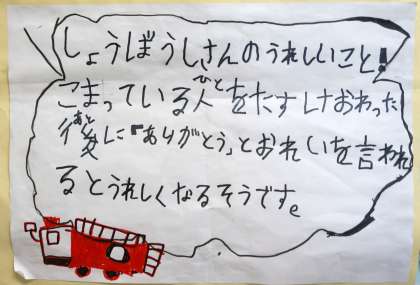 しょうぼうしさんのうれしいこと!
こまっている人をたすけおわった
後に「ありがとう」とおれいを言われ
るとうれしくなるそうです。